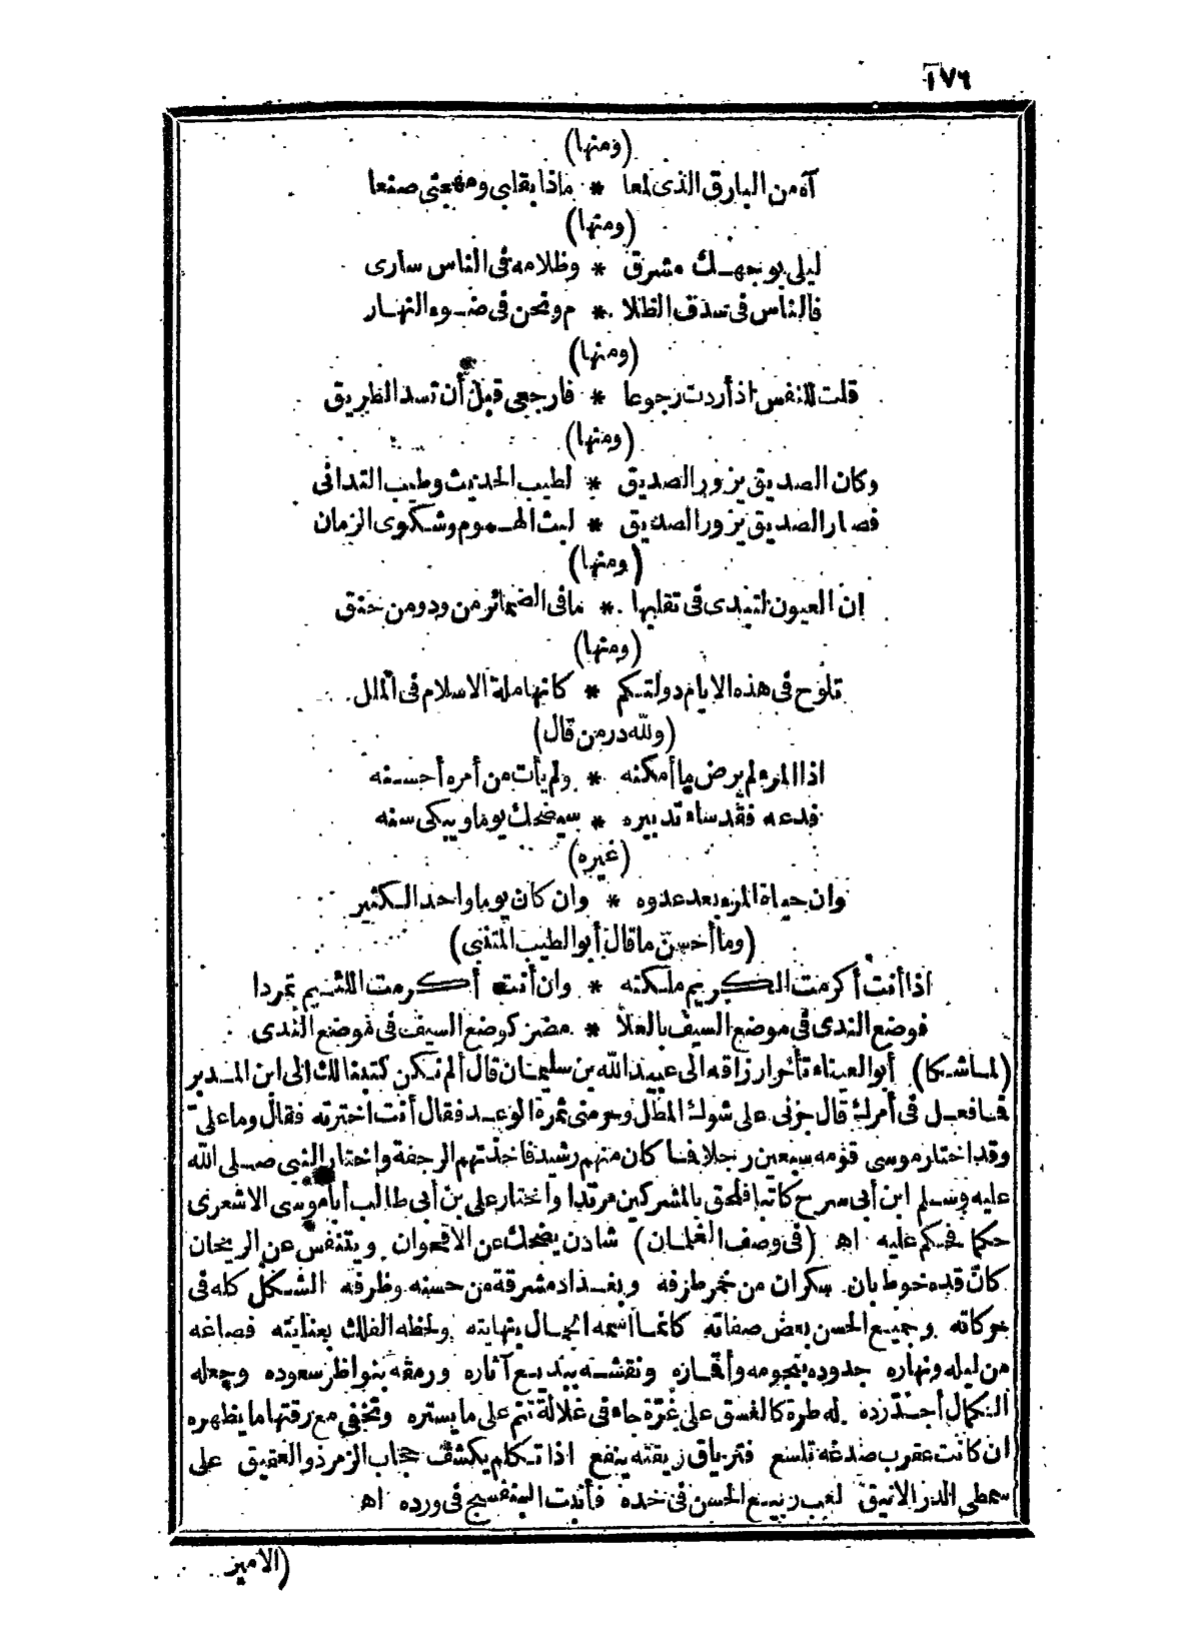 ١٧٦
(ومنها)
آه من البارق الذى لمعا * ماذا بقلبى ومهجتى صنعا
(ومنها)
ليلى بوجهك مشرق * وظلامه فى الناس سارى
فالناس فى سدف الظلا * م ونحن فى ضوء النهار
(ومنها)
قلت للنفس اذ أردت رجوعا * فارجعى قبل أن تسد الطريق
(ومنها)
وكان الصديق يزور الصديق * لطيب الحديث وطيب التدانى
فصار الصديق يزور الصديق * لبث الهموم وشكوى الزمان
(ومنها)
ان العيون لتبدى فى تقلبها * مافى الضمائر من ود ومن حنق
(ومنها)
تلوح فى هذه الايام دولتكم * كانها ملة الاسلام فى الملل
(ولله در من قال)
اذا المرء لم يرض ما أمكنه * ولم يأت من أمره أحسنه
فدعه فقد ساء تدبيره * سيضحك يوما ويبكى سنه
(غيره)
وان حياة المرء بعد عدوه * وان كان يوما واحد الكثير
(وما أحسن ماقال أبو الطيب المتنبى)
اذا أنت أكرمت الكريم ملكته * وان أنت أكرمت اللئيم تمردا
فوضع الندى فى موضع السيف بالعلا * مضر كوضع السيف فى موضع الندى
(لما شكا) أبو العيناء تأخر ارزاقه الى عبيد الله بن سليمان قال ألم نكن كتبنا لك الى ابن المدبر
فما فعل فى أمرك قال جرنى على شوك المطل وحرمنى ثمرة الوعد فقال أنت اخترته فقال وما على
وقد اختار موسى قومه سبعين رجلا فما كان منهم رشيد فاخذتهم الرجفة واختار النبى صلى الله
عليه وسلم ابن أبى سرح كاتبا فلحق بالمشركين مرتدا واختار على بن أبى طالب أبا موسى الاشعرى
حكما فحكم عليه اه (فى وصف الغلمان) شادن يضحك عن الاقحوان ويتنفس عن الريحان
كان قده خوط بان سكران من خمر طرفه وبغداد مشرقة من حسنه وظرفه الشكل كله فى
حركاته وجميع الحسن بعض صفاته كانما اسمه الجمال بنهايته ولحظه الفلك بعنايته فصاغه
من ليله ونهاره جدوده بنجومه وأقماره ونقشه ببديع آثاره ورمقه بنواظر سعوده وجعله
الكمال أحد زده له طرة كالغسق على غرة جاء فى غلالة تنم على ما يستره وتخفى مع رقتها ما يظهره
ان كانت عقرب صدغه تلسع فترياق ريقته ينفع اذا تكلم يكشف حجاب الزمرذ والعقيق على
سمطى الدر الانيق لعب ربيع الحسن فى خده فأنبت البنفسج فى ورده اه
(الامير